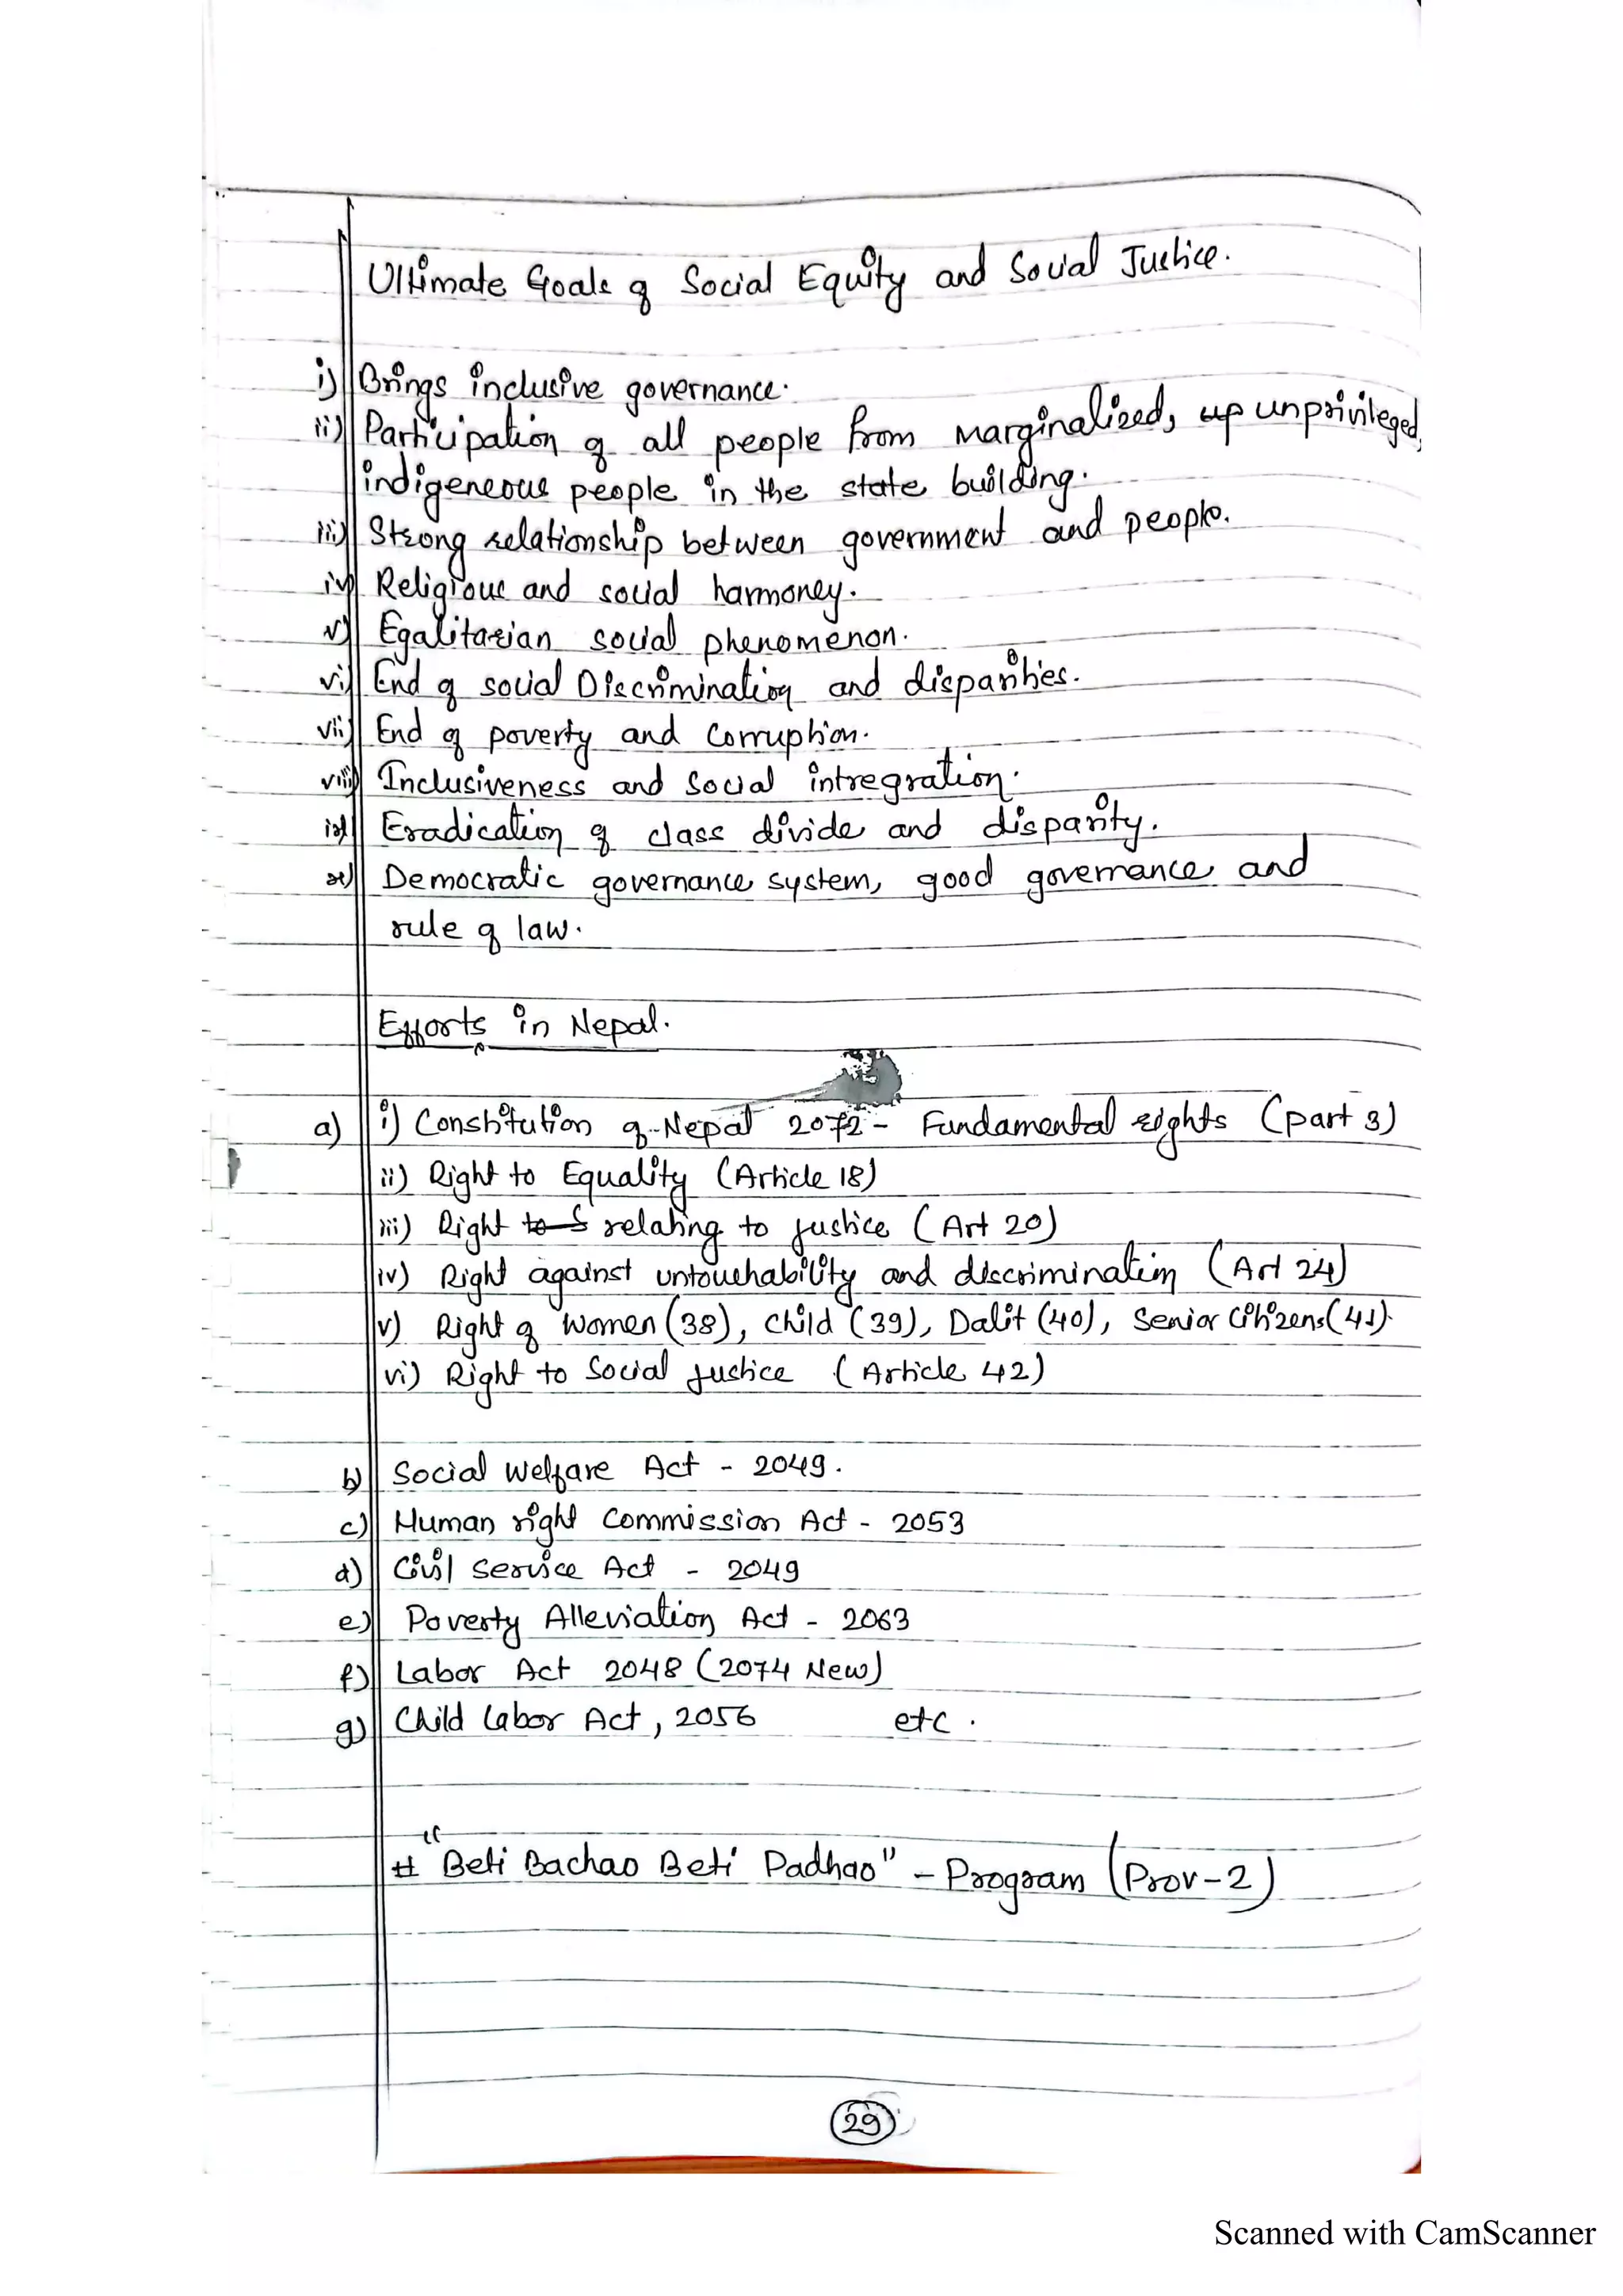 Ultimate Goals of Social Equity and Social Justice.
i) Brings inclusive governance.
ii) Participation of all people from marginalized, up unprivileged,
indigeneous people in the state building.
iii) Strong relationship between government and people.
iv) Religious and social harmoney.
v) Egalitarian social phenomenon.
vi) End of social Discrimination and disparities.
vii) End of poverty and Corruption.
viii) Inclusiveness and Social intregration.
ix) Eradication of class divide and disparity.
x) Democratic governance system, good governance and
rule of law.
Efforts in Nepal.
a) i) Constitution of Nepal 2072 - Fundamental rights (part 3)
ii) Right to Equality (Article 18)
iii) Right to S relating to justice (Art 20)
iv) Right against untouchability and discrimination (Art 24)
v) Right of Women (38), Child (39), Dalit (40), Senior Citizens (41).
vi) Right to Social justice (Article 42)
b) Social Welfare Act - 2049.
c) Human right Commission Act - 2053
d) Civil Service Act - 2049
e) Poverty Alleviation Act - 2063
f) Labor Act 2048 (2074 New)
g) Child Labor Act, 2056 etc.
# "Beti Bachao Beti Padhao" - Program (Prov-2)
29
Scanned with CamScanner